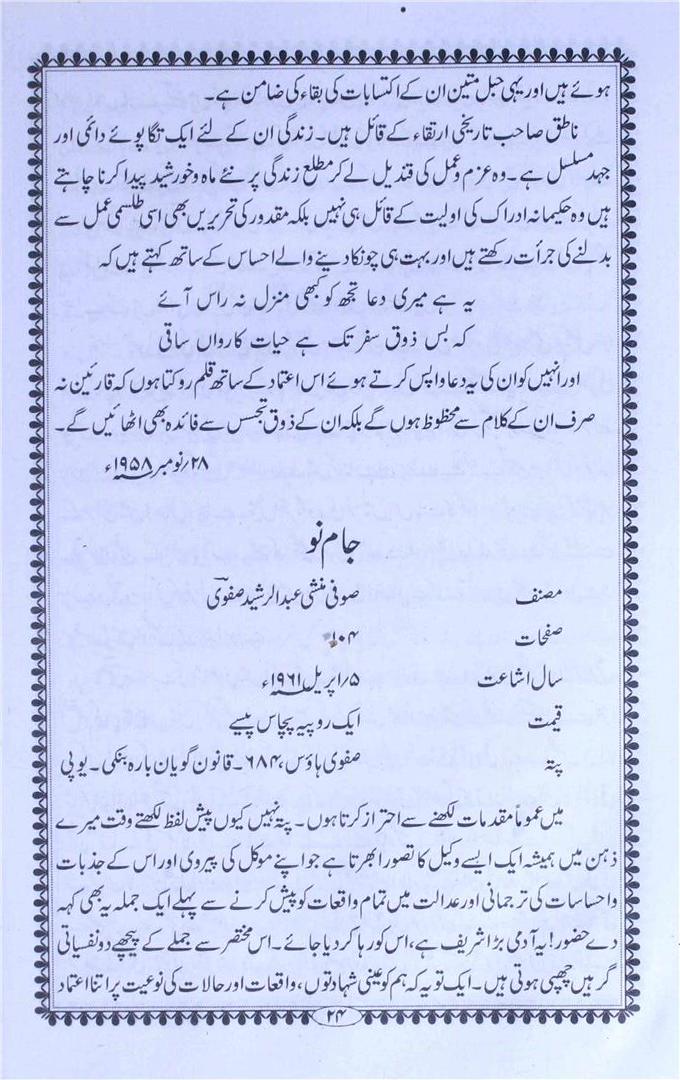 ہوئے ہیں اور یہی حبل متین ان کے اکتسابات کی بقاء کی ضامن ہے۔
ناطق صاحب تاریخی ارتقاء کے قائل ہیں۔ زندگی ان کے لئے ایک تگاپوئے دائمی اور
جہد مسلسل ہے۔ وہ عزم و عمل کی قندیل لے کر مطلع زندگی پر نئے ماہ و خورشید پیدا کرنا چاہتے
ہیں وہ حکیمانہ ادراک کی اولیت کے قائل ہی نہیں بلکہ مقدور کی تحریریں بھی اسی طلسمی عمل سے
بدلنے کی جرأت رکھتے ہیں اور بہت ہی چونکا دینے والے احساس کے ساتھ کہتے ہیں کہ
یہ ہے میری دعا تجھ کو کبھی منزل نہ راس آئے
کہ بس ذوق سفر تک ہے حیات کارواں ساقی
اور انہیں کو ان کی یہ دعا واپس کرتے ہوئے اس اعتماد کے ساتھ قلم روکتا ہوں کہ قارئین نہ
صرف ان کے کلام سے محظوظ ہوں گے بلکہ ان کے ذوق تجسس سے فائدہ بھی اٹھائیں گے۔
۲۸/نومبر ۱۹۵۸ء
جام نو
مصنف صوفی منشی عبدالرشید صفوی
صفحات ۱۰۴
سال اشاعت ۵/اپریل ۱۹۶۱ء
قیمت ایک روپیہ پچاس پیسے
پتہ صفوی ہاؤس ۶۸۴۔ قانون گویان بارہ بنکی۔ یوپی
میں عموما مقدمات لکھنے سے احتراز کرتا ہوں۔ پتہ نہیں کیوں پیش لفظ لکھتے وقت میرے
ذہن میں ہمیشہ ایک ایسے وکیل کا تصور ابھرتا ہے جو اپنے موکل کی پیروی اور اس کے جذبات
و احساسات کی ترجمانی اور عدالت میں تمام واقعات کو پیش کرنے سے پہلے ایک جملہ یہ بھی کہہ
دے حضور! یہ آدمی بڑا شریف ہے، اس کو رہا کر دیا جائے۔ اس مختصر سے جملے کے پیچھے دو نفسیاتی
گرہیں چھپی ہوتی ہیں۔ ایک تو یہ کہ ہم کو عینی شہادتوں، واقعات اور حالات کی نوعیت پر اتنا اعتماد
۲۴